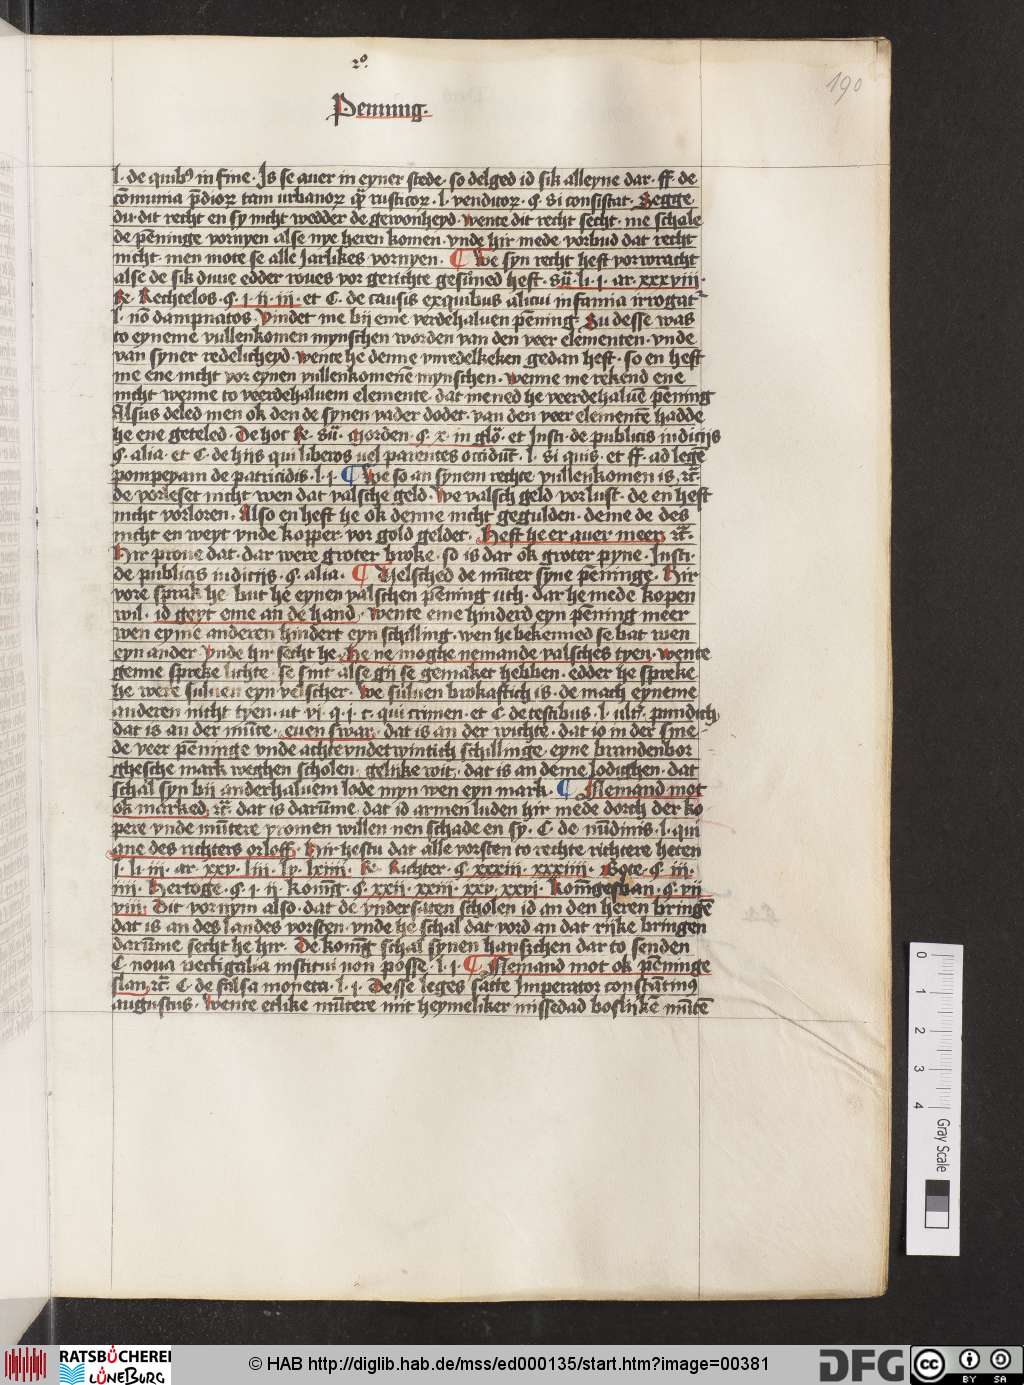 2º.
190
Pennng.
l. de quibꝰ in fine. Is se auer in eyner stede. so delged id sik alleyne dar. ff. de
cōmunia p̄dioꝝ tam urbanoꝝ q̄ȝ rusticoꝝ. l. venditor. §. si constat. Segge
du. dit recht en sy nicht wedder de gewonheyd. wente dit recht secht. me schale
de pēninge vornyen alse nye heren komen. vnde hir mede vorbud dat recht
nicht. men mote se alle Jarlikes vornyen. ¶ We syn recht heft vorwracht
alse de sik duue edder roues vor gerichte gesūned heft. Su̅. li. i. ar. xxxviii.
Re. Rechtelos. §. i. ii. iii. et C. de causis exquibus alicui infamia irrogat᷑
l. nō dampnatos. Vindet me bij eme verdehaluen pēning. Su desse was
to eyneme vullenkomen mynschen worden van den veer elementen. vnde
van syner redelicheyd. wente he denne vnredelkeken gedan heft. so en heft
me ene nicht vor eynen vullenkomenē mynschen. wenne me rekend ene
nicht wenne to veerdehaluem elemente. dat mened he veerdehaluē pēning
Alsus deled men ok den de synen vader dodet. van den veer elementē hadde
he ene geteled. De hot Re. Su̅. Morden. §. x. in glo. et Insti. de publicis iudicijs
§. alia. et C. de hijs qui liberos uel parentes occidūt. l. si quis. et ff. ad legē
pompeyam de patricidis. l. i. ¶ We so an synem rechte vullenkomen is, ꝛc̄.
de vorleset nicht wen dat valsche geld. We valsch geld vorlust. de en heft
nicht vorloren. Also en heft he ok denne nicht gegulden. deme de des
nicht en weyt vnde kopper vor gold geldet. Heft he er auer meer ꝛc̄.
Hir proue dat. dar were groter broke. so is dar ok groter pyne. Insti.
de publicis iudicijs. §. alia. ¶ Velsched de mūter syne pēninge. Hir
vore sprak he. but he eynen valschen pēning uth. dar he mede kopen
wil. id geyt eme an de hand. Wente eme hinderd eyn pēning meer
wen eyme anderen hindert eyn schilling. wen he bekenned se bat wen
eyn ander. Vnde hir secht he. He ne moghe nemande valsches tyen. Wente
genne spreke lichte. se sint alse gij se gemaket hebben. edder he spreke
he were suluen eyn velscher. We suluen brokaftich is. de mach eyneme
anderen nicht tyen. ut vi. q. i. c. qui crimen. et C. de testibus. l. ult᷑. pundich
dat is an der mūte. euen swar. dat is an der wichte. dat io in der sme-
de veer pēninge vnde achteundetwintich schillinge. eyne brandenbor
ghesche mark weghen scholen. gelijke wit. dat is an deme lodighen. dat
schal syn bij anderhaluem lode myn wen eyn mark. ¶ Nemand mot
ok marked, ꝛc̄. dat is darūme. dat id armen luden hir mede dorch der ko
pere vnde mūtere vromen willen nen schade en sy. C. de nūdinis. l. qui
ane des richters orloff. Hir hestu dat alle vorsten to rechte richtere heten
i. li. iii. ar. xxv. liii. lv. lxiiii. Re. Richter. §. xxxiii. xxxiiii. Bote. §. iii.
iiii. Hertoge. §. i. ii Konīg. §. xxii. xxiii. xxv. xxvi. Konīgesban. §. vii
viii. Dit vornym also. dat de vndersaten scholen id an den heren bringē
dat is an des landes vorsten. vnde he schal dat vord an dat rijke bringen
darūme secht he hir. De konīg schal synen hantschen dar to senden
C. noua vectigalia institui non posse. l. i. ¶ Nemand mot ok pēninge
slan, ꝛc̄. C. de falsa moneta. l. i. Desse leges satte Imperator constātinꝰ
augustus. Wente etlike mūtere mit heymeliker missedad boslikē mūtē
0
1
2
3
4
Gray Scale
RATSBÜCHEREI
LÜNEBURG
© HAB http://diglib.hab.de/mss/ed000135/start.htm?image=00381
DFG
cc
BY SA